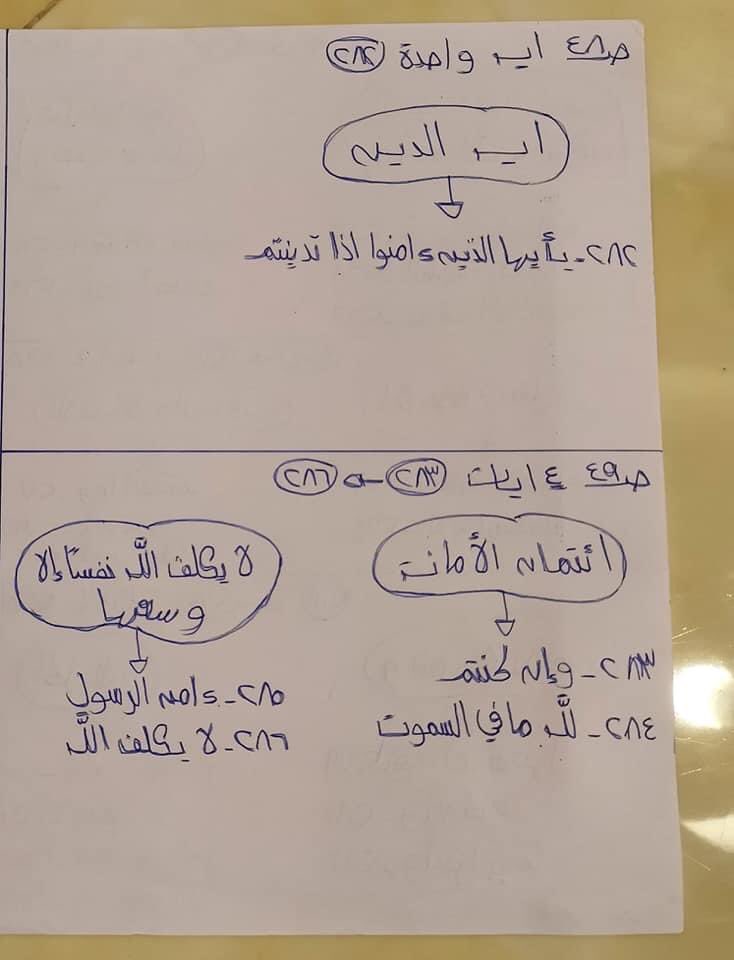 ص٤٨ ايه واحدة ٢٨٢
ايه الدين
٢٨٢- يأيها الذين ءامنوا اذا تدينتم
ص٤٩ ٤ ايات ٢٨٣ - ٢٨٦
ائتمان الأمانة
٢٨٣- وإن كنتم
٢٨٤- لله ما في السموت
لا يكلف الله نفسًا إلا
وسعها
٢٨٥- ءامن الرسول
٢٨٦- لا يكلف الله